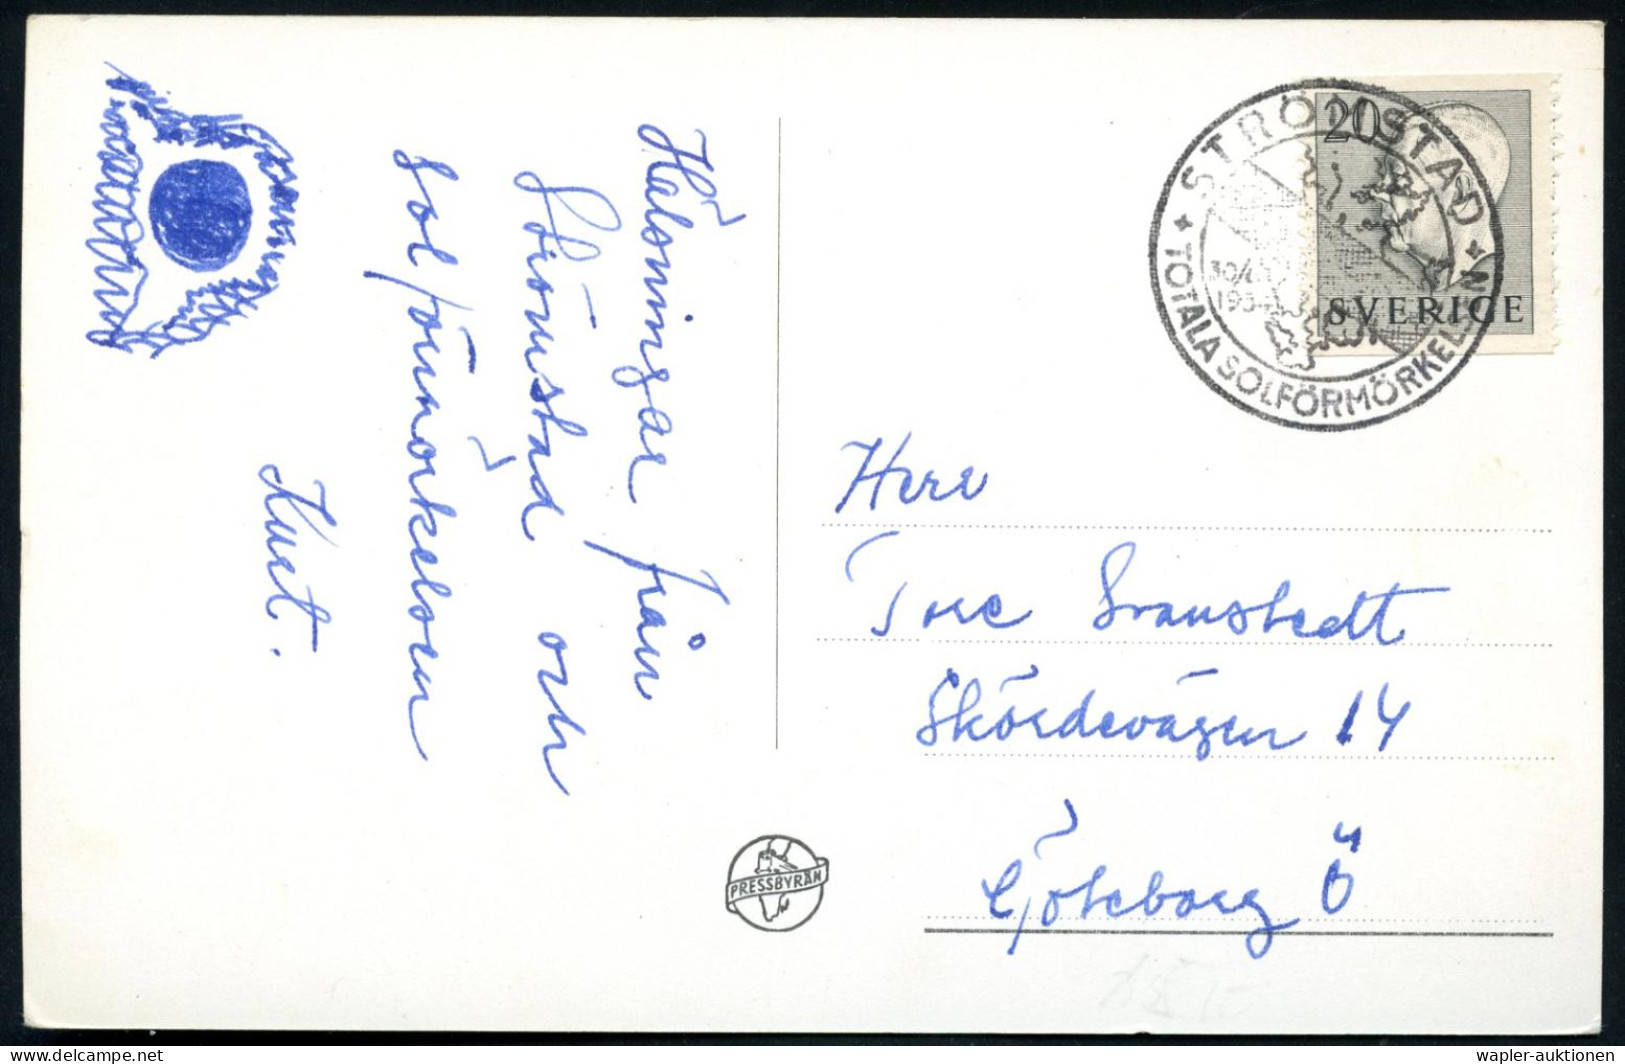 Hälsningar från
Strömstad och
solförmörkelsen
Kurt.
STRÖMSTAD
30/6
1954
TOTALA SOLFÖRMÖRKELSEN
20
SVERIGE
Herr
Tore
Skördevägen 14
Göteborg Ö
PRESSBYRÅN
wapler-auktionen